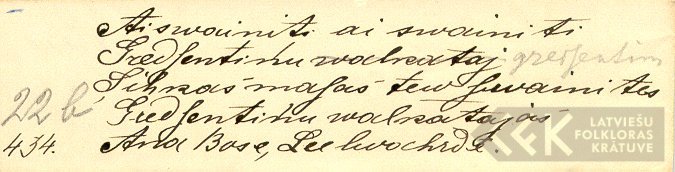 Ai swainiti ai swainiti
Gredsentiņu walkataj gredsentiņ
Sihkas masas tew swainites
22 b Gredsentiņu walkatajas
434. Ana Bose, Leelwahrdē.
LFK LATVIEŠU
FOLKLORAS
KRĀTUVE